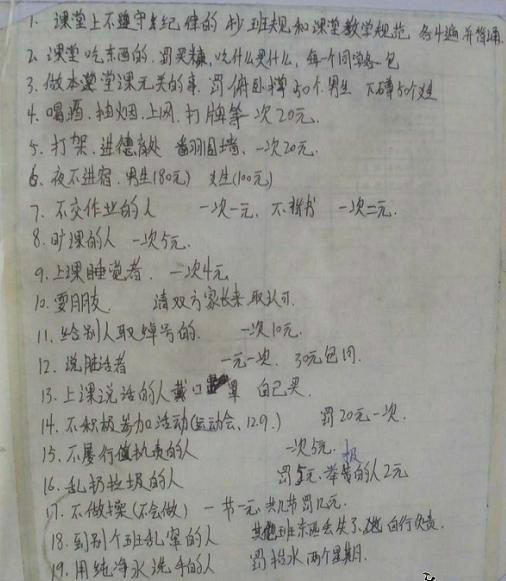 1. 课堂上不遵守纪律的 抄班规和课堂教学规范 各4遍并背诵
2. 课堂吃东西的. 罚买糖, 吃什么买什么, 每个同学各一包
3. 做本堂课无关的事. 罚俯卧撑50个男生 下蹲50个女生
4. 喝酒. 抽烟. 上网. 打牌等一次20元.
5. 打架. 进德育处 翻围墙. 一次20元.
6. 夜不进宿. 男生(180元) 女生(100元)
7. 不交作业的人 一次一元. 不抄 一次二元.
8. 旷课的人 一次5元.
9. 上课睡觉者. 一次4元
10. 耍朋友. 请双方家长来取认可.
11. 给别人取绰号的. 一次10元.
12. 说脏话者 一元一次. 30元包月.
13. 上课说话的人戴口罩 自己买.
14. 不积极参加活动(运动会、12.9.) 罚20元一次.
15. 不履行值执责的人 一次5元.
16. 乱扔垃圾的人 罚5元. 举报的人2元
17. 不做操(不会做) 一节一元. 共几节罚几元.
18. 到别个班乱窜的人 其他班东西丢失了, 自行负责.
19. 用纯净水洗手的人 罚抬水两个星期.